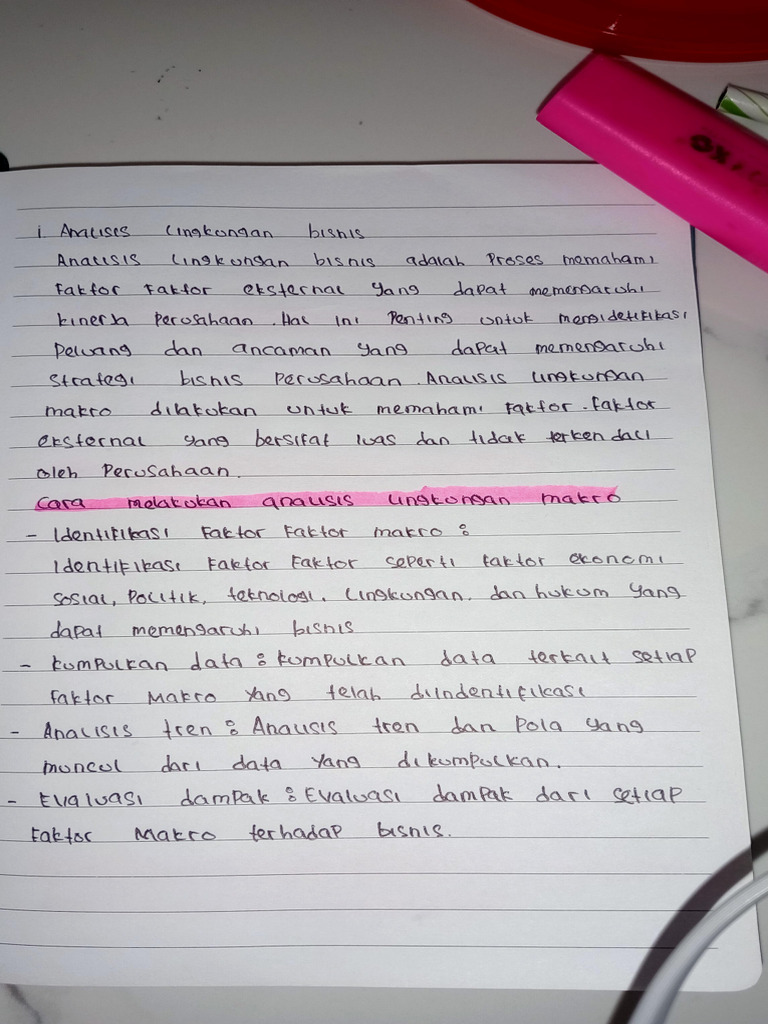 1. Analises lingkungan bisnis
Analisis lingkungan bisnis adalah Proses memahami
Faktor Faktor eksternal yang dapat memengaruhi
kinerja Perusahaan. Hal ini Penting untuk mengidetifikasi
Peluang dan ancaman yang dapat memengaruhi
Strategi bisnis Perusahaan. Analisis lingkungan
makro dilakukan untuk memahami Faktor-faktor
eksternal yang bersifat luas dan tidak terkendali
oleh Perusahaan.
Cara melakukan analisis lingkungan makro
- Identifikasi Faktor Faktor makro :
Identifikasi Faktor Faktor seperti faktor ekonomi
sosial, Politik, teknologi, lingkungan, dan hukum yang
dapat memengaruhi bisnis
- Kumpulkan data : kumpulkan data terkait setiap
Faktor Makro yang telah diindentifikasi
- Analisis tren : Analisis tren dan Pola yang
muncul dari data yang dikumpulkan.
- Evaluasi dampak : Evaluasi dampak dari setiap
Faktor Makro terhadap bisnis.